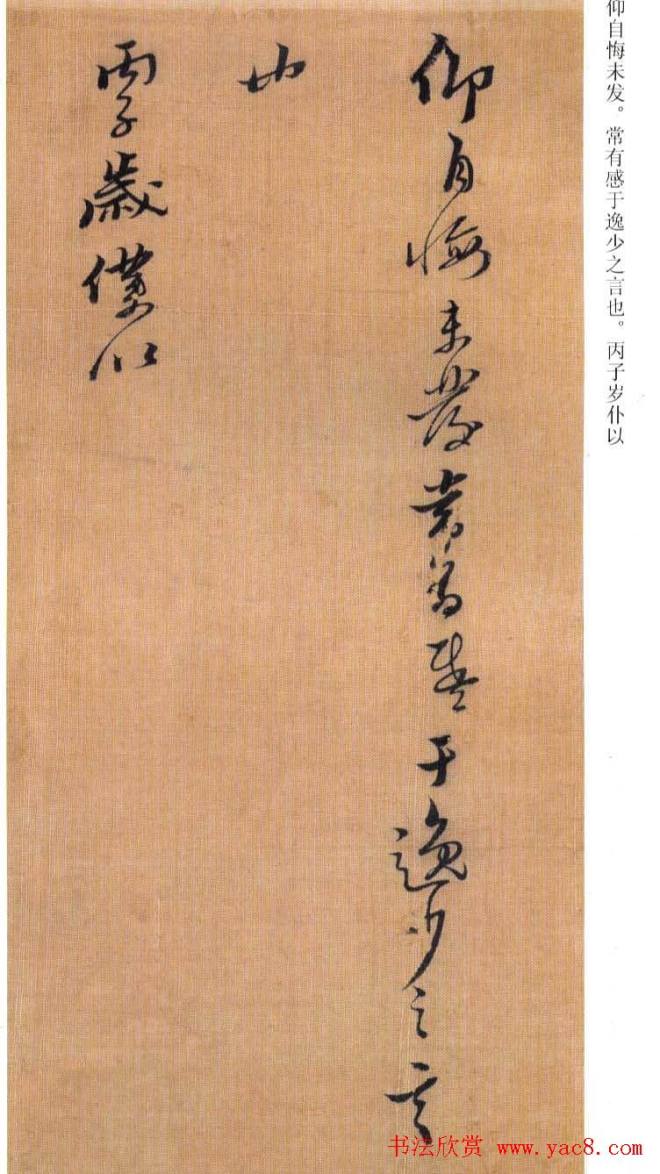 仰自悔未發常有感于逸少之言
也
丙子歲僕以
仰自悔未发。常有感于逸少之言也。丙子岁仆以
书法欣赏 www.yac8.com